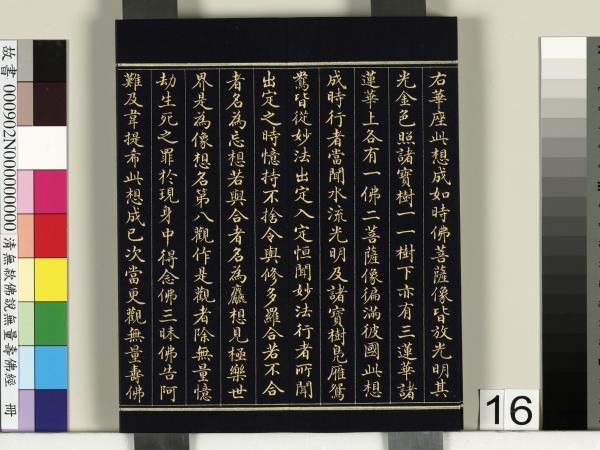 右華座此想成如時佛菩薩像皆放光明其
光金色照諸寶樹一一樹下亦有三蓮華諸
蓮華上各有一佛二菩薩像徧滿彼國此想
成時行者當聞水流光明及諸寶樹鳧雁鴛
鴦皆從妙法出定入定恒聞妙法行者所聞
出定之時憶持不捨令與修多羅合若不合
者名為忘想若與合者名為麤想見極樂世
界是為像想名第八觀作是觀者除無量憶
劫生死之罪於現身中得念佛三昧佛告阿
難及韋提希此想成已次當更觀無量壽佛
故書 000902N000000000 清無款佛說無量壽佛經 冊
16